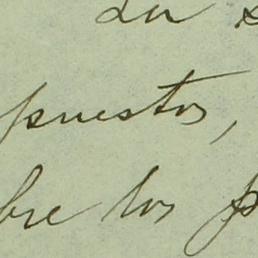 puestos,
bre los p